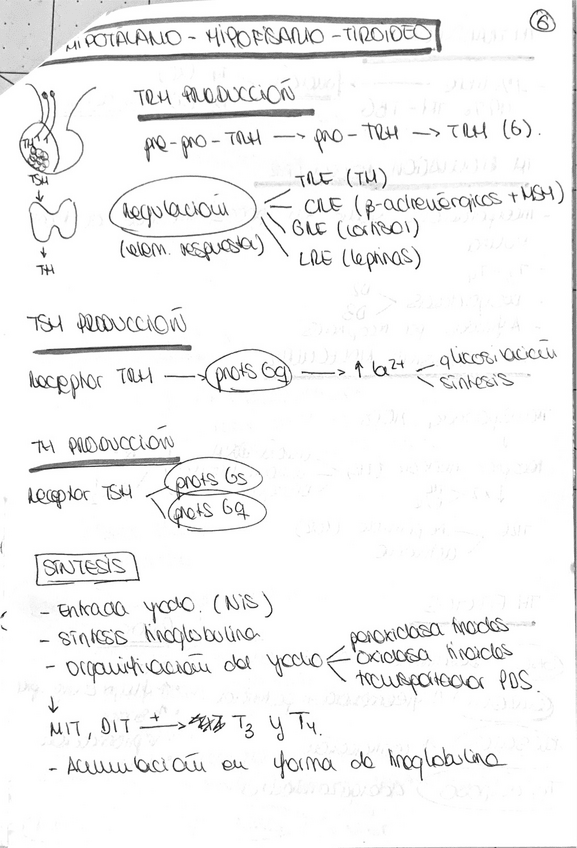 6
HIPOTALAMO - HIPOFISARIO - TIROIDEO
TRH PRODUCCIÓN
pre-pro-TRH → pro-TRH → TRH (6).
TH
TSH
TH
Regulación
(elem. respuesta)
TRE (TH)
CRE (β-adrenérgicos + MSH)
GRE (cortisol)
LRE (leptinas)
TSH PRODUCCIÓN
Receptor TRH → prots Gq → ↑ Ca²⁺
glicosilación
síntesis
TH PRODUCCIÓN
Receptor TSH
prots Gs
prots Gq
SÍNTESIS
- Entrada yodo. (NIS)
- síntesis tiroglobulina
- organificación del yodo
peroxidasa tiroidea
oxidasa tiroidea
transportador PDS.
↓
MIT, DIT + → T₃ y T₄.
- Acumulación en forma de tiroglobulina